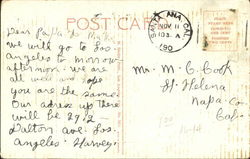 POST CARD
SANTA ANA, CAL.
NOV 11
10 A
190
Dear Papa &
we will go to Los-
angeles to morrow
afternoon. we are
all well and hope
you are the same.
Our adress up there
will be 2912-
Dalton ave. Los-
Angeles. Harvey.
Mr. M. C. Cook
St. Helena
Napa Co.
Cal.